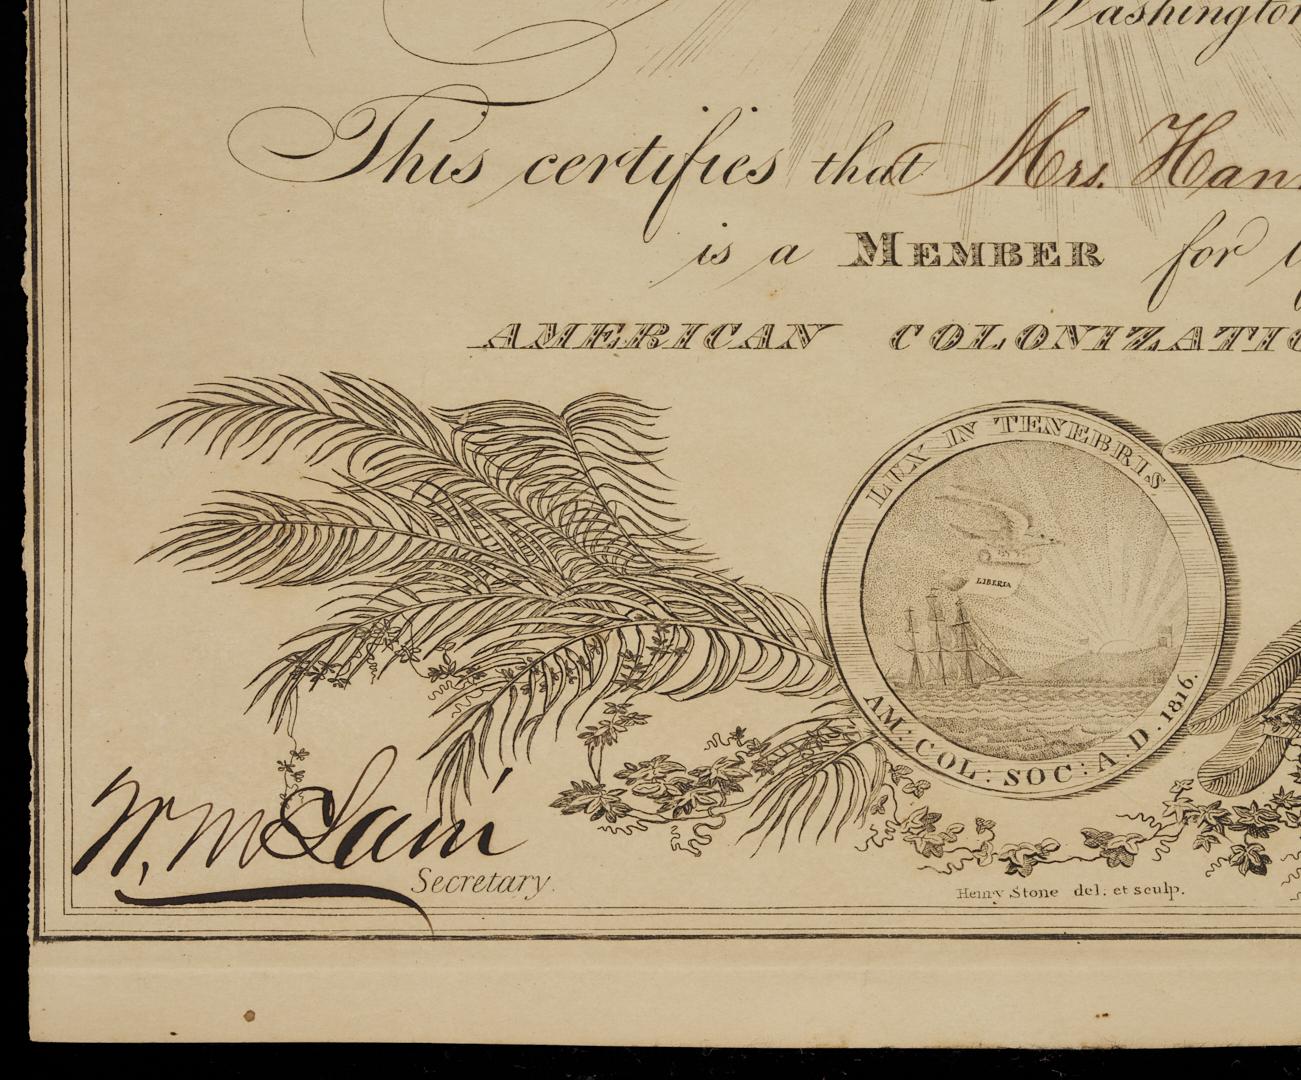 Washington
This certifies that Mrs. Han
is a MEMBER for
AMERICAN COLONIZATIO
LUX IN TENEBRIS
LIBERIA
AM: COL: SOC: A. D. 1816.
W. McLain
Secretary.
Henry Stone del. et sculp.